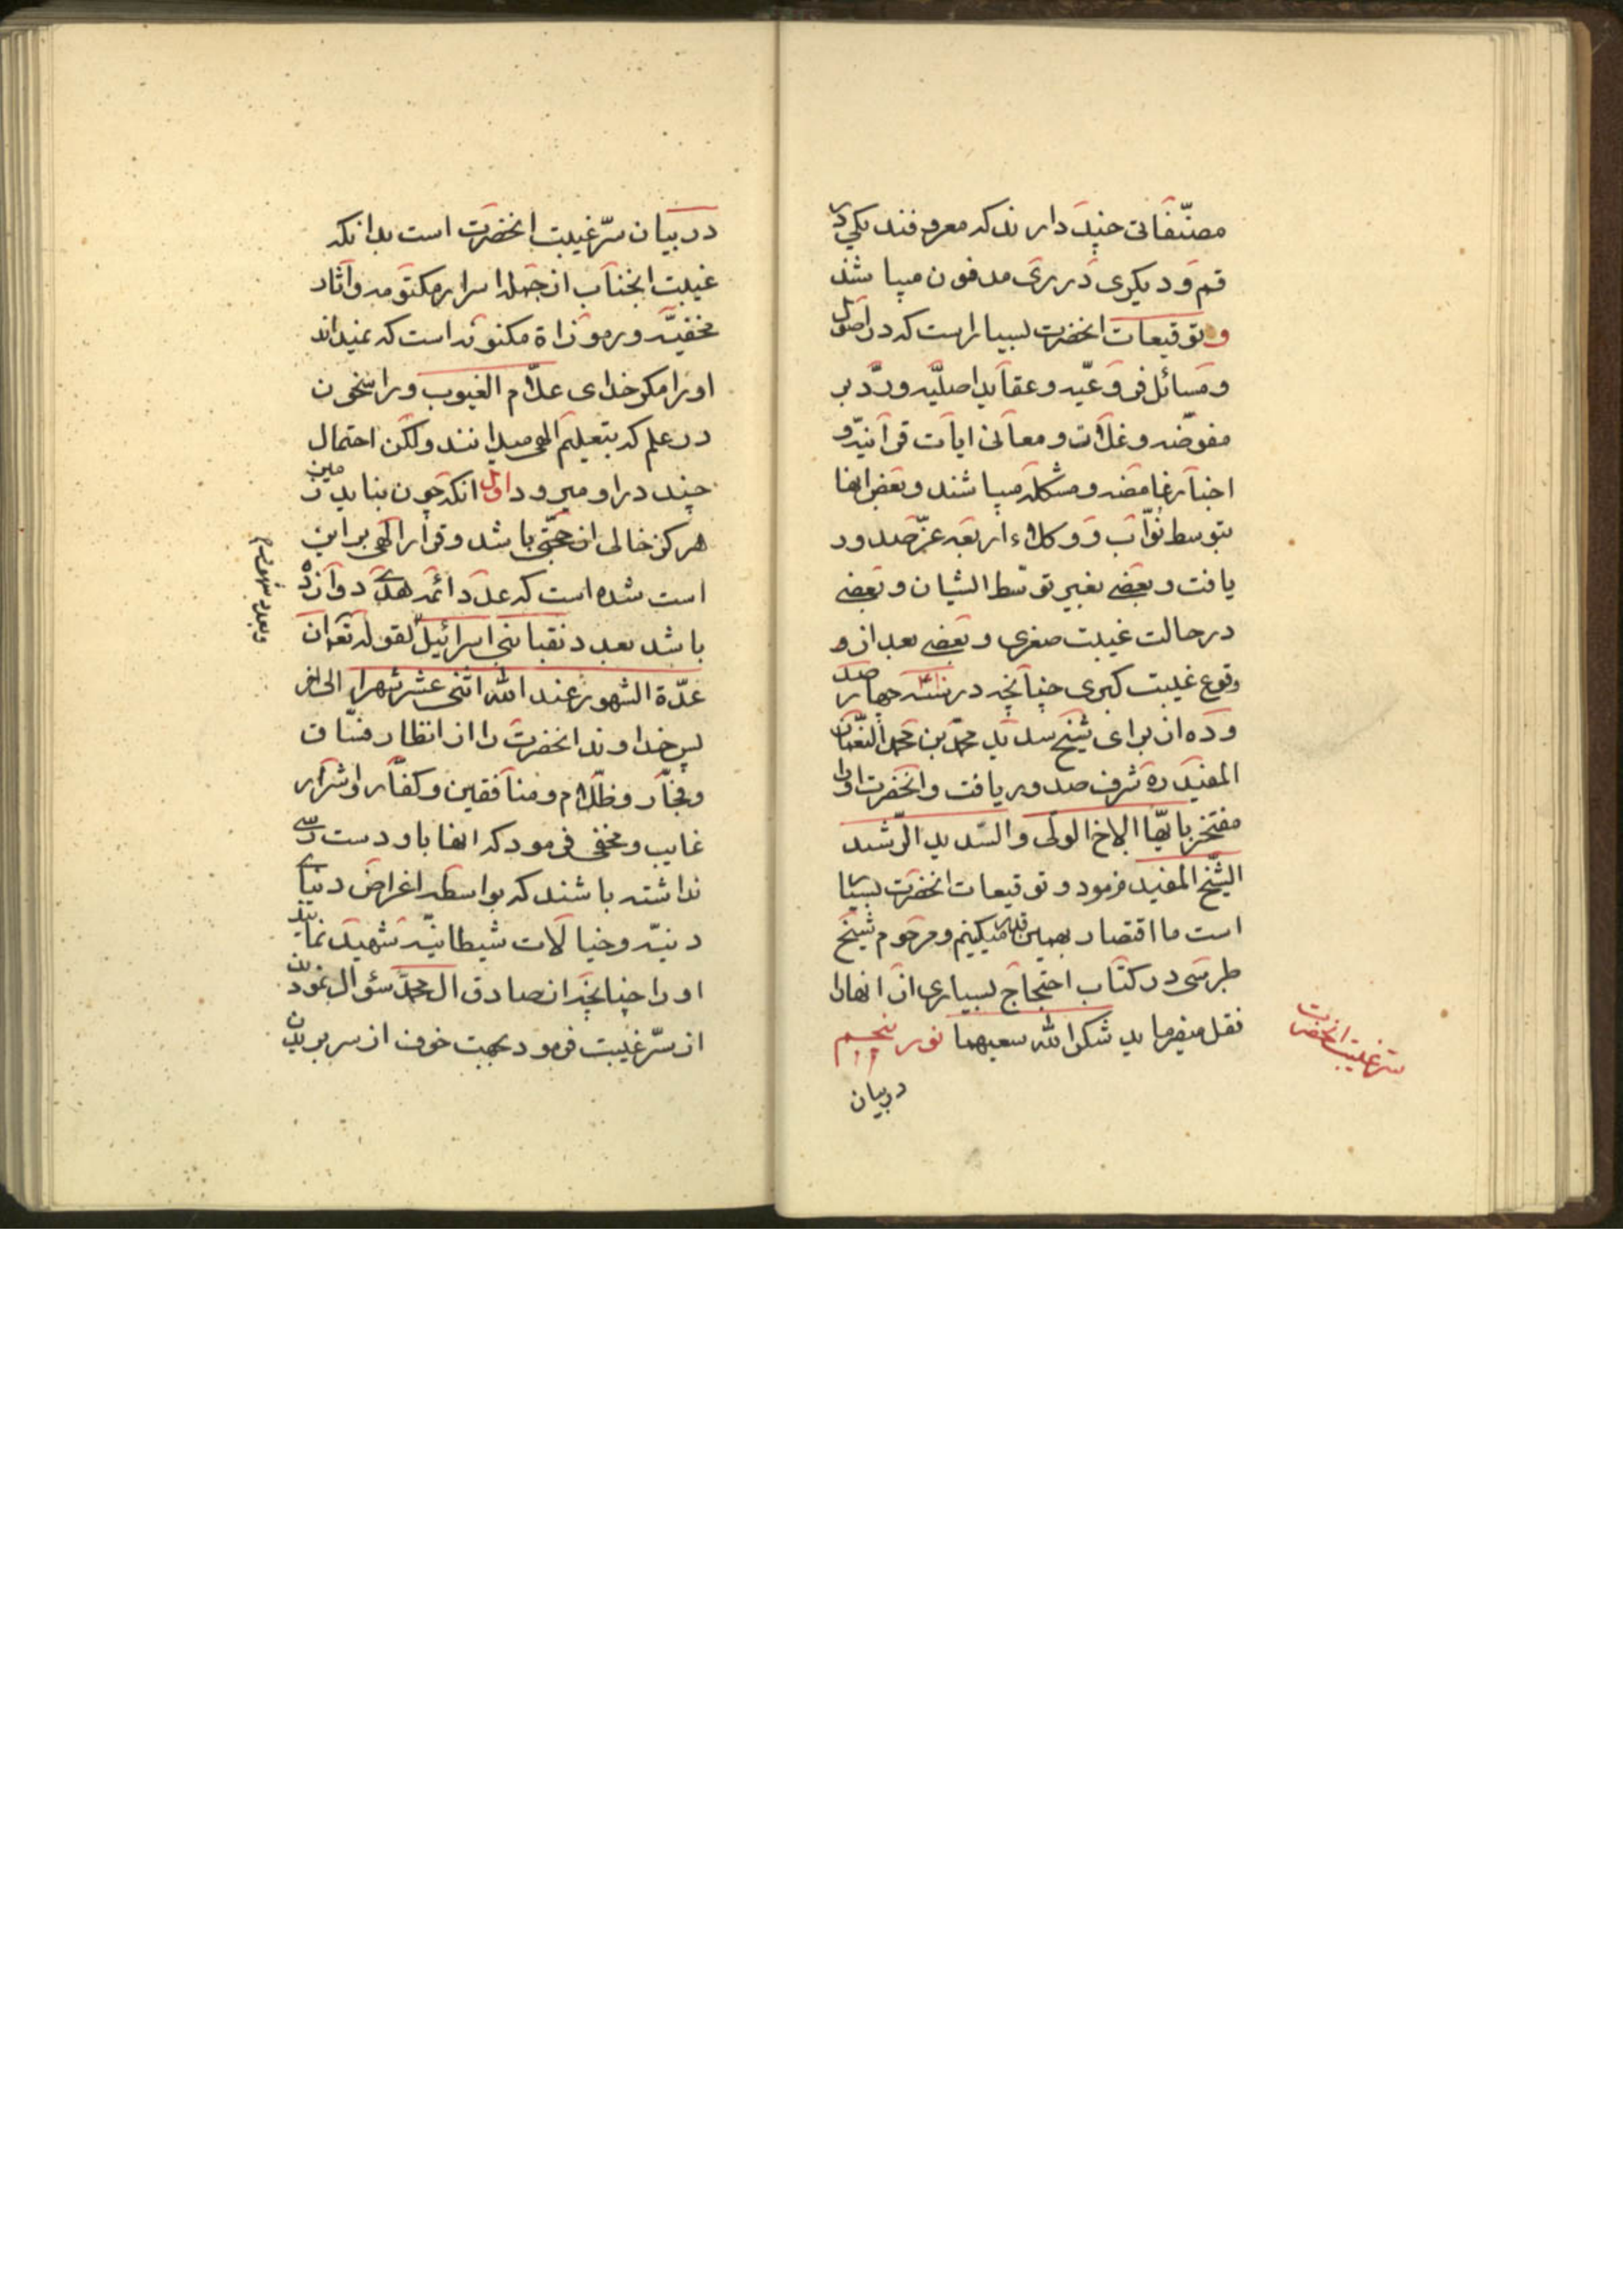 مصنّفاتی چند دارند که معروفند یکی در
قم و دیگری در ری مدفون میباشند
و توقیعات انحضرت بسیار است که در اصول
و مسائل فروعیّه و عقاید اصلیّه و ردّ بر
مفوّضه و غلات و معانی ایات قرآنیّه و
اخبار غامضه و مشکله میباشند و بعض انها
بتوسط نوّاب و وکلاء اربعه عزّ صدور
یافت و بعضی بغیر توسّط ایشان و بعضی
در حالت غیبت صغری و بعضی بعد از و
وقوع غیبت کبری چنانچه در سنه چهار صد
و ده از برای شیخ سدید محمّد بن محمد النّعمان
المفید ره شرف صدور یافت و انحضرت او را
مفتخر بایّها الاخ الولی و السّدید الرّشید
الشّیخ المفید فرمود و توقیعات انحضرت بسیار
است ما اقتصار بهمین قدر میکنیم و مرحوم شیخ
طبرسی در کتاب احتجاج بسیاری از انها را
نقل میفرماید شکر الله سعیهما نور پنجم
در بیان
سرّ غیبت انحضرت
در بیان سرّ غیبت انحضرت است بدانکه
غیبت انجناب از جمله اسرار مکتومه و اثار
مخفیّه و رموزاة مکنونه است که نمیداند
او را مکر خدای علّام الغیوب و راسخون
در علم که بتعلیم الهی میدانند ولکن احتمال
چند در او میرود اوّل انکه چون بناید زمین
هرکز خالی از حجّتی باشد و قرار الهی بر این
است شده است که عدد ائمه هدی دوازده
باشد بعدد نقبا بنی اسرائیل لقوله تعم ان
عدّة الشهور عند الله اثنی عشر شهرا الی اخر
پس خداوند انحضرت را از انظار فسّاق
و فجّار و ظلّام و منافقین و کفّار و اشرار
غایب و مخفی فرمود که انها باو دست رسی
نداشته باشند که بواسطه اغراض دنیای
دنیّه و خیالات شیطانیّه شهید نمایند
او را چنانچه از صادق ال محمّد سؤال نمودند
از سرّ غیبت فرمود بجهت خوف از سر بریدن